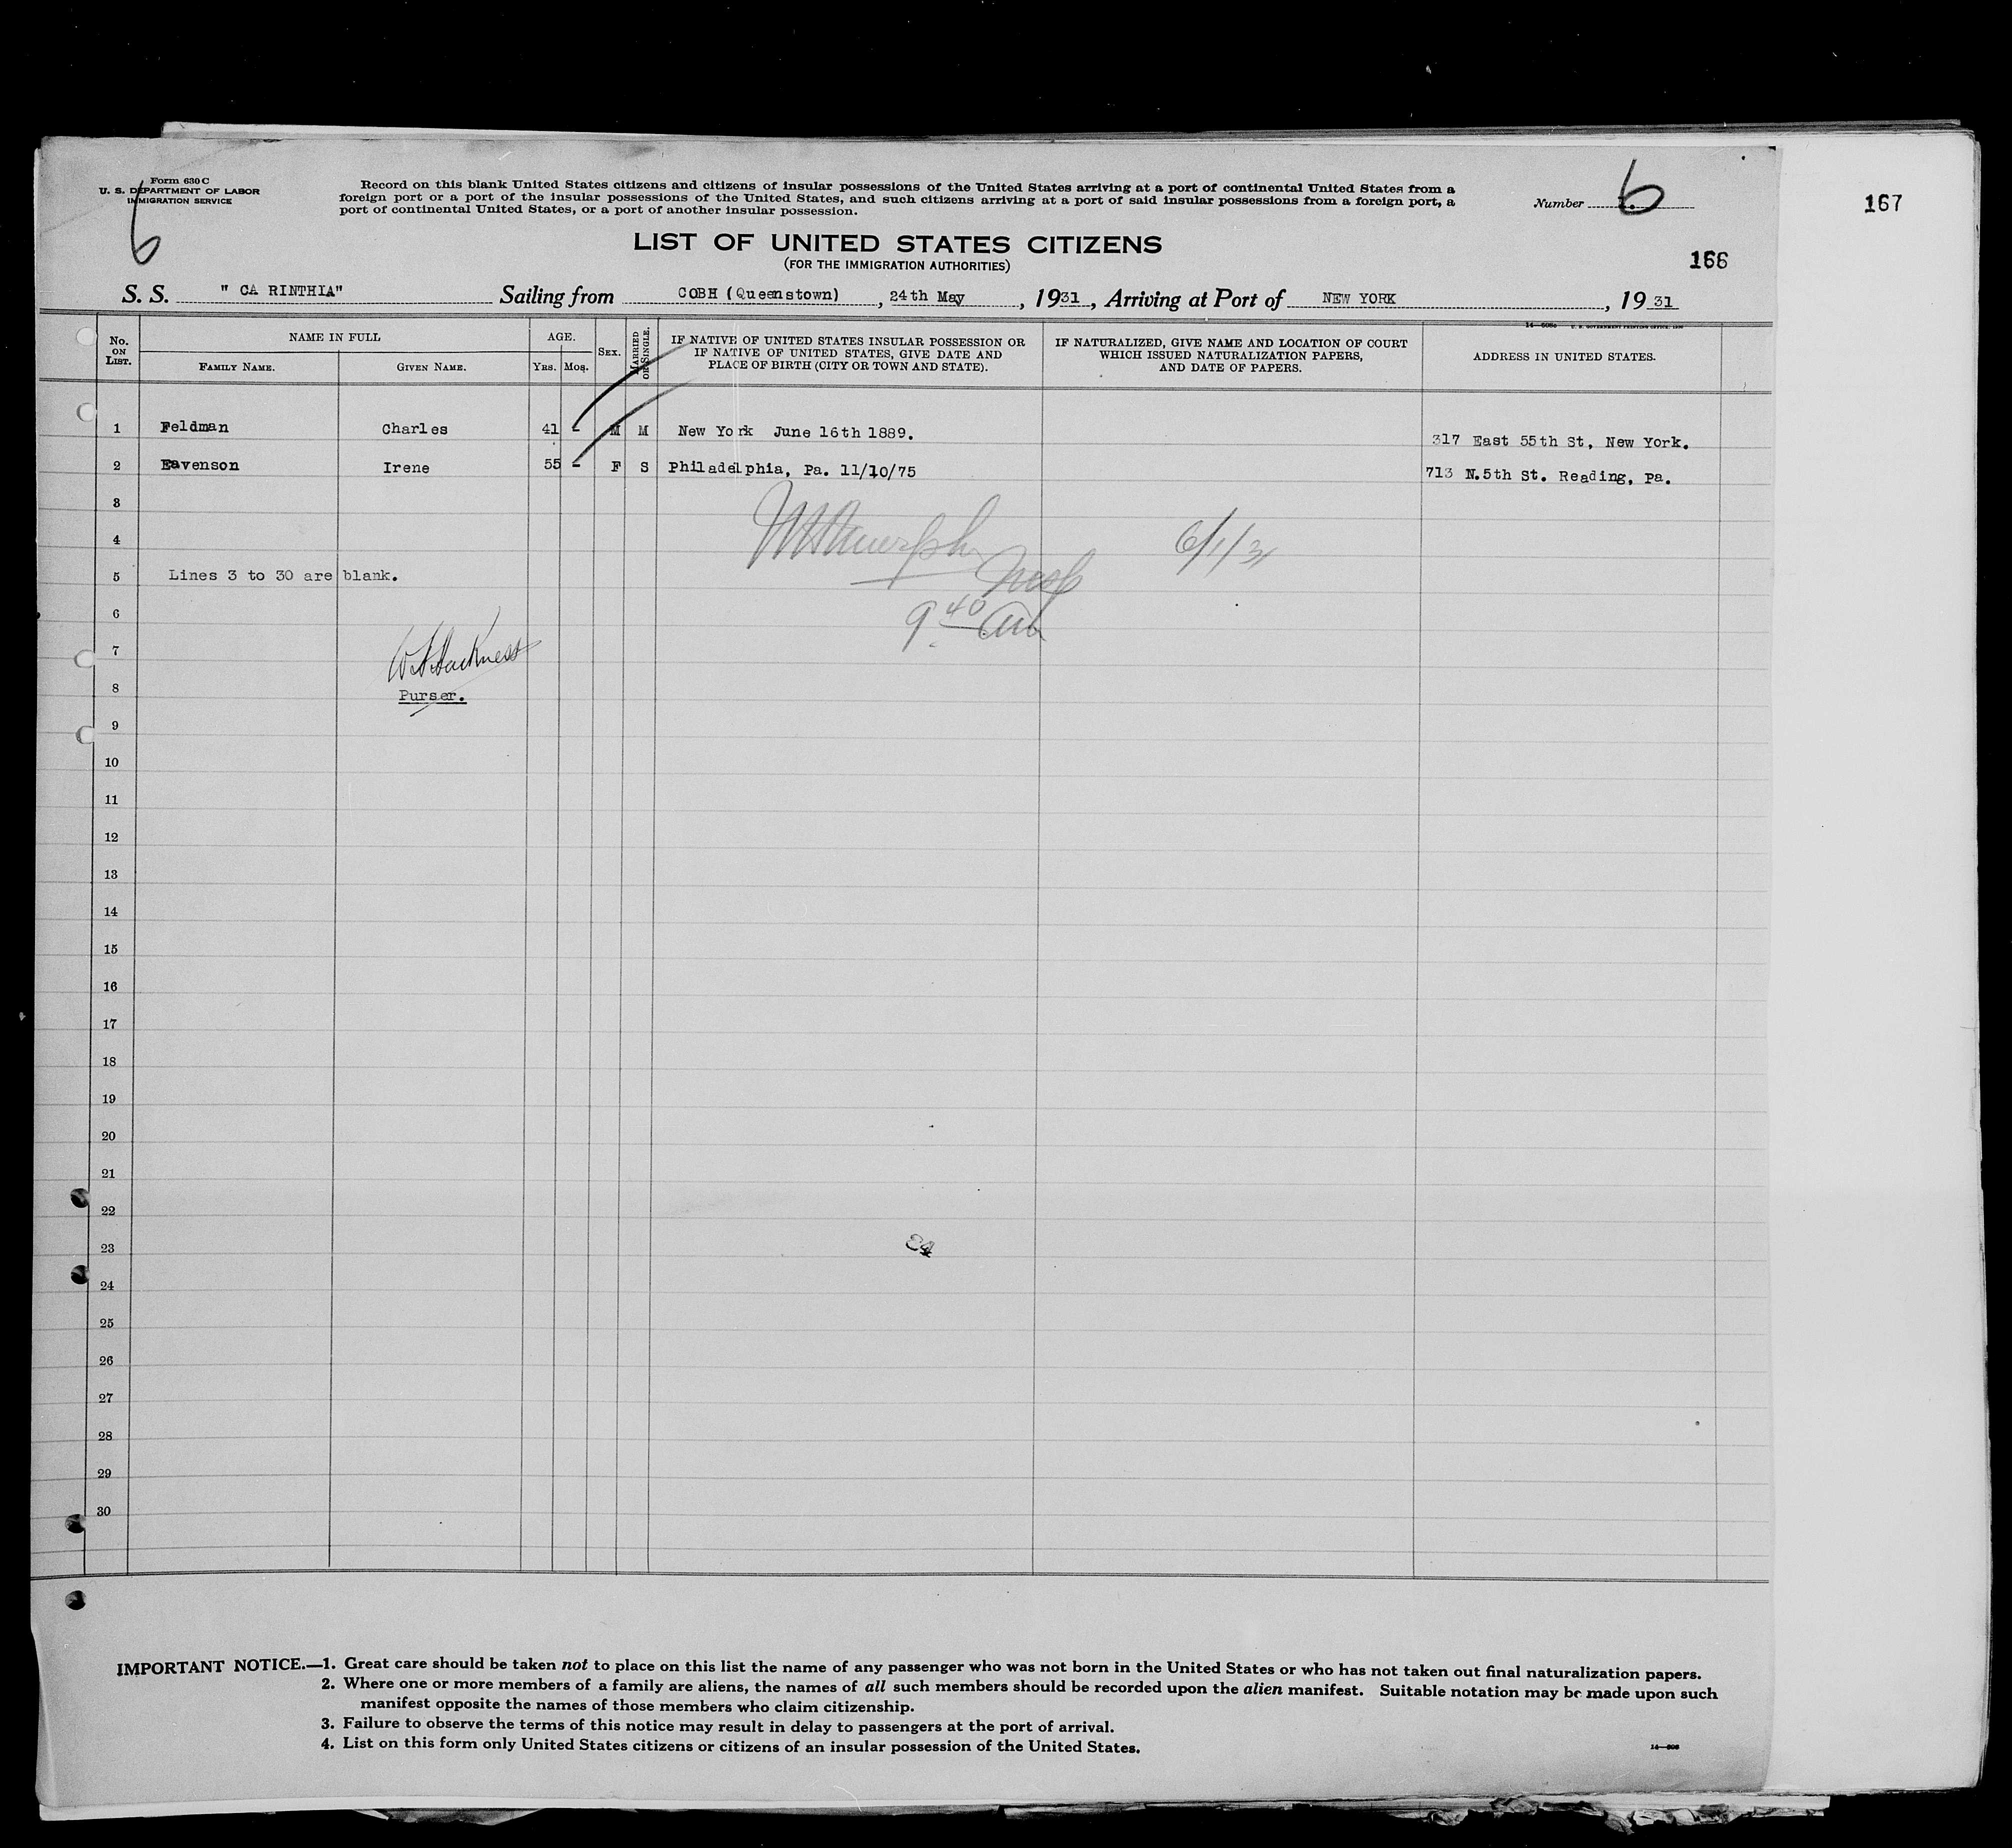 Form 630 C
U. S. DEPARTMENT OF LABOR
IMMIGRATION SERVICE
6
Record on this blank United States citizens and citizens of insular possessions of the United States arriving at a port of continental United States from a
foreign port or a port of the insular possessions of the United States, and such citizens arriving at a port of said insular possessions from a foreign port, a
port of continental United States, or a port of another insular possession.
Number 6
167
166
LIST OF UNITED STATES CITIZENS
(FOR THE IMMIGRATION AUTHORITIES)
S. S. " CA RINTHIA" Sailing from COBH (Queenstown), 24th May, 1931, Arriving at Port of NEW YORK, 1931
No. ON LIST. NAME IN FULL FAMILY NAME. GIVEN NAME. AGE. YRS. MOS. SEX. MARRIED OR SINGLE.
IF NATIVE OF UNITED STATES INSULAR POSSESSION OR
IF NATIVE OF UNITED STATES, GIVE DATE AND
PLACE OF BIRTH (CITY OR TOWN AND STATE).
IF NATURALIZED, GIVE NAME AND LOCATION OF COURT
WHICH ISSUED NATURALIZATION PAPERS,
AND DATE OF PAPERS.
14—608c U. S. GOVERNMENT PRINTING OFFICE
ADDRESS IN UNITED STATES.
1 Feldman Charles 41 - M M New York June 16th 1889. 317 East 55th St, New York.
2 Eavenson Irene 55 - F S Philadelphia, Pa. 11/10/75 713 N.5th St. Reading, Pa.
3
4 6/1/31
5 Lines 3 to 30 are blank.
6 9 40 am
7
8 Purser.
9
10
11
12
13
14
15
16
17
18
19
20
21
22
23
24
25
26
27
28
29
30
IMPORTANT NOTICE.—1. Great care should be taken not to place on this list the name of any passenger who was not born in the United States or who has not taken out final naturalization papers.
2. Where one or more members of a family are aliens, the names of all such members should be recorded upon the alien manifest. Suitable notation may be made upon such
manifest opposite the names of those members who claim citizenship.
3. Failure to observe the terms of this notice may result in delay to passengers at the port of arrival.
4. List on this form only United States citizens or citizens of an insular possession of the United States.
14—608